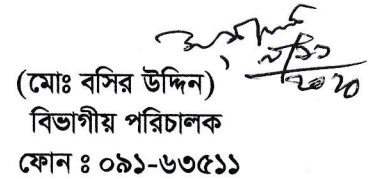 (মোঃ বসির উদ্দিন)
বিভাগীয় পরিচালক
ফোন ঃ ০৯১-৬৩৫১১